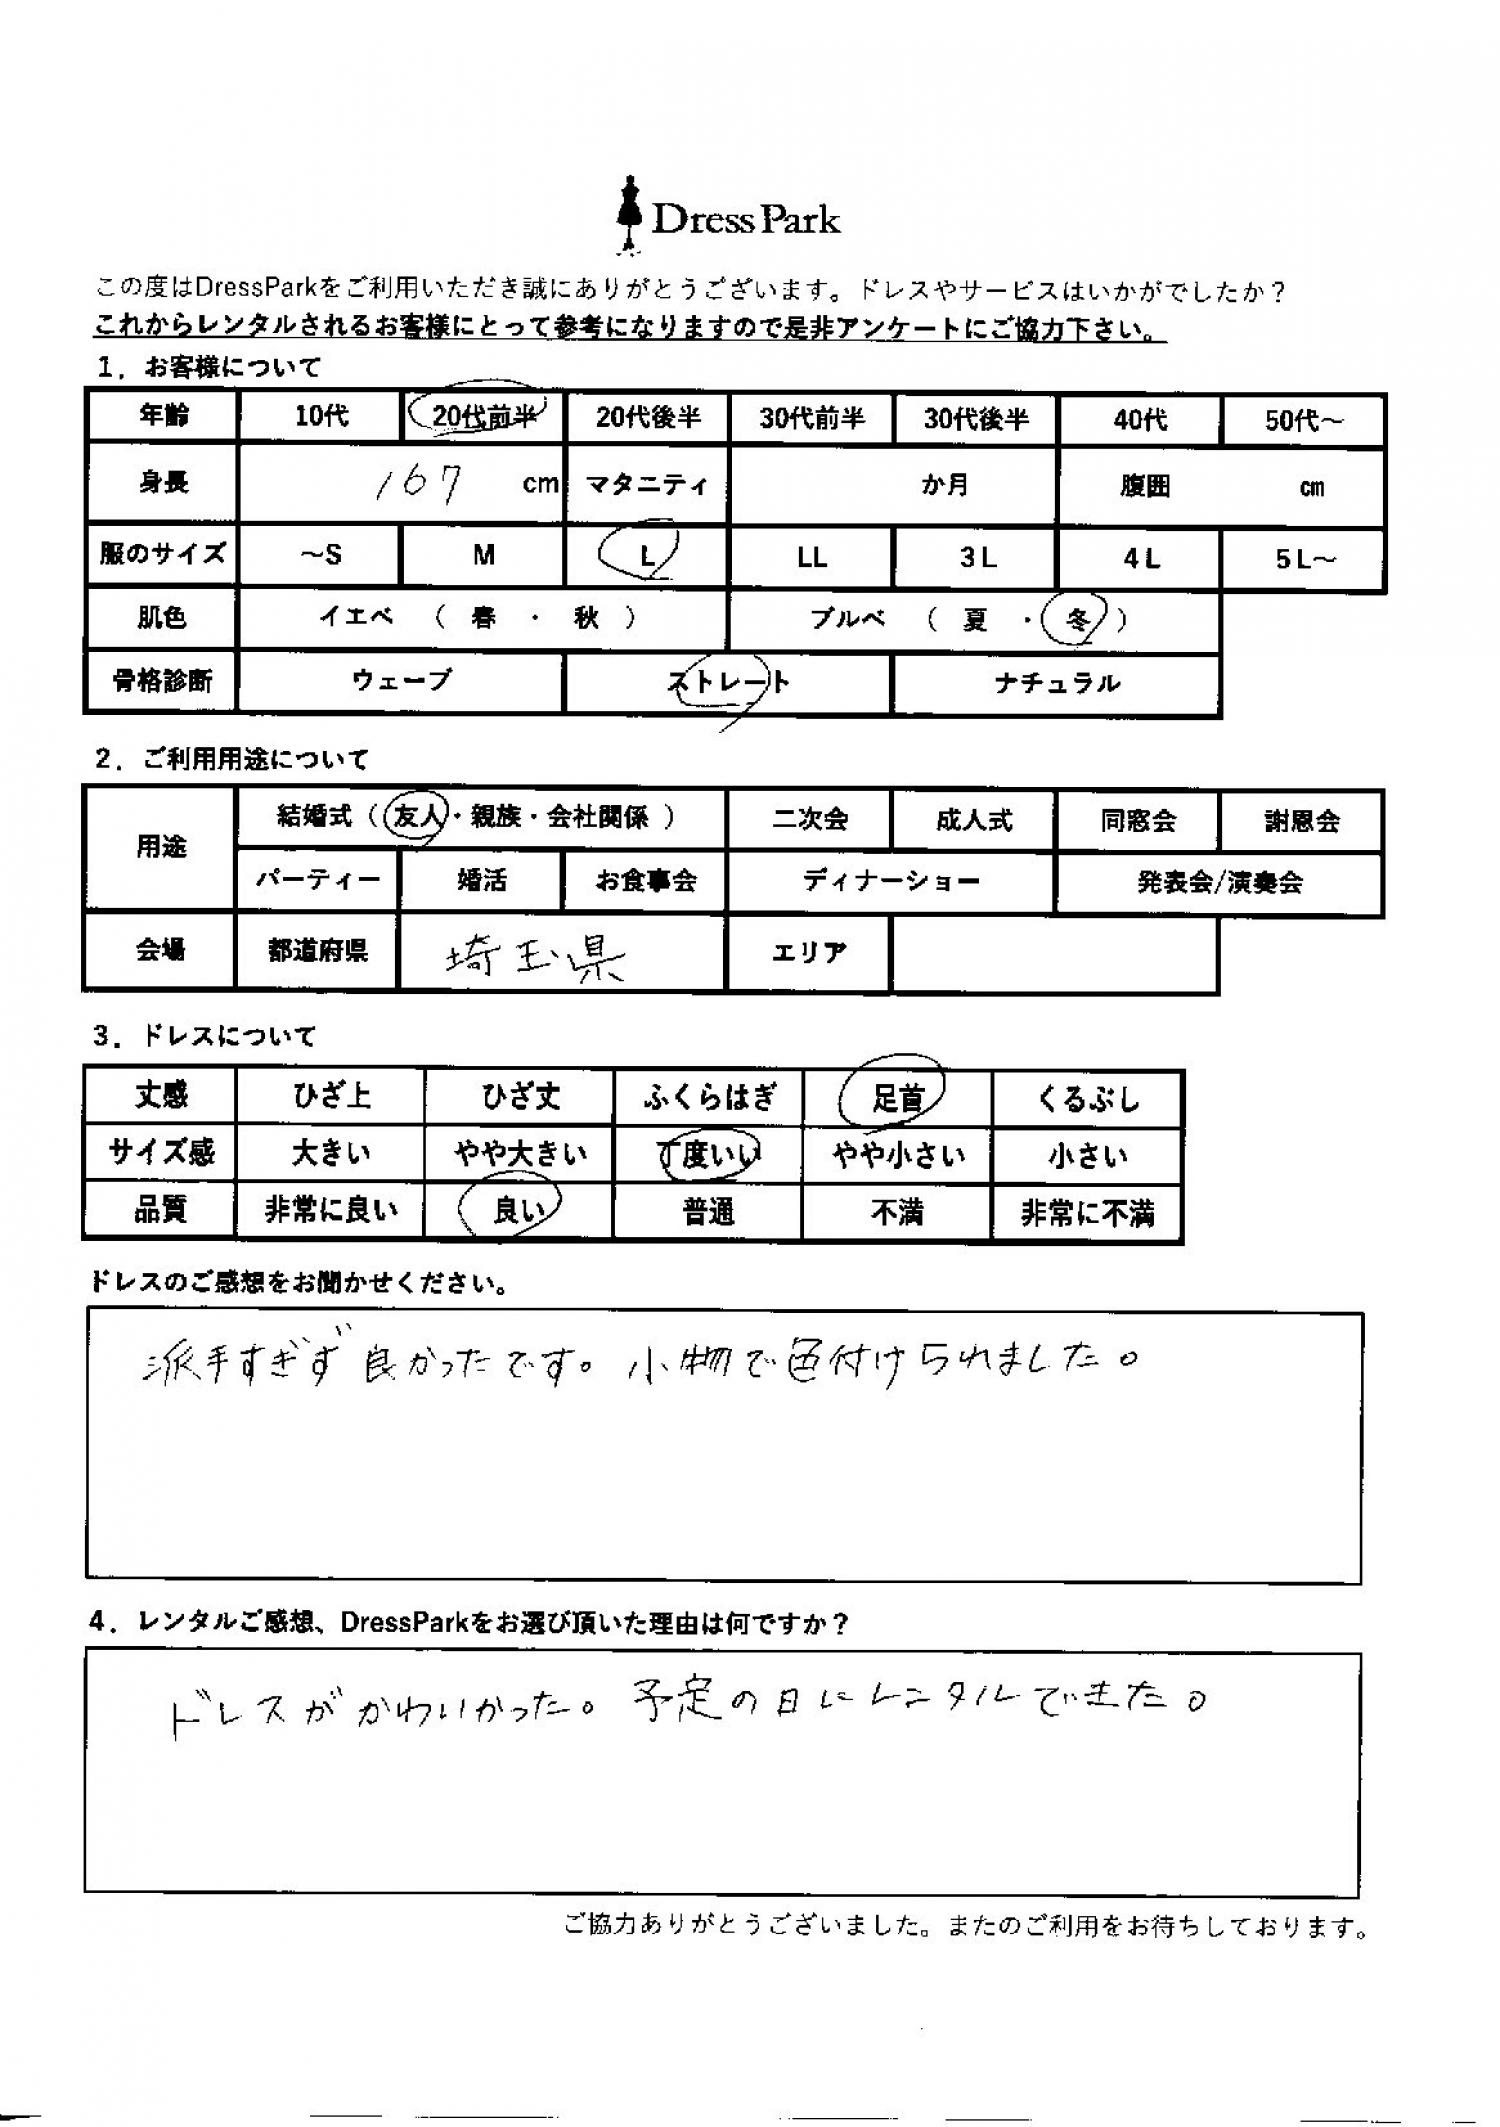 Dress Park
この度はDressParkをご利用いただき誠にありがとうございます。ドレスやサービスはいかがでしたか？
これからレンタルされるお客様にとって参考になりますので是非アンケートにご協力下さい。
1．お客様について
年齢 10代 20代前半 20代後半 30代前半 30代後半 40代 50代～
身長 167 cm マタニティ か月 腹囲 cm
服のサイズ ～S M L LL 3L 4L 5L～
肌色 イエベ （ 春 ・ 秋 ） ブルベ （ 夏 ・ 冬 ）
骨格診断 ウェーブ ストレート ナチュラル
2．ご利用用途について
用途 結婚式（ 友人・親族・会社関係 ） 二次会 成人式 同窓会 謝恩会
パーティー 婚活 お食事会 ディナーショー 発表会/演奏会
会場 都道府県 埼玉県 エリア
3．ドレスについて
丈感 ひざ上 ひざ丈 ふくらはぎ 足首 くるぶし
サイズ感 大きい やや大きい 丁度いい やや小さい 小さい
品質 非常に良い 良い 普通 不満 非常に不満
ドレスのご感想をお聞かせください。
派手すぎず良かったです。小物で色付けられました。
4．レンタルご感想、DressParkをお選び頂いた理由は何ですか？
ドレスがかわいかった。予定の日にレンタルできた。
ご協力ありがとうございました。またのご利用をお待ちしております。